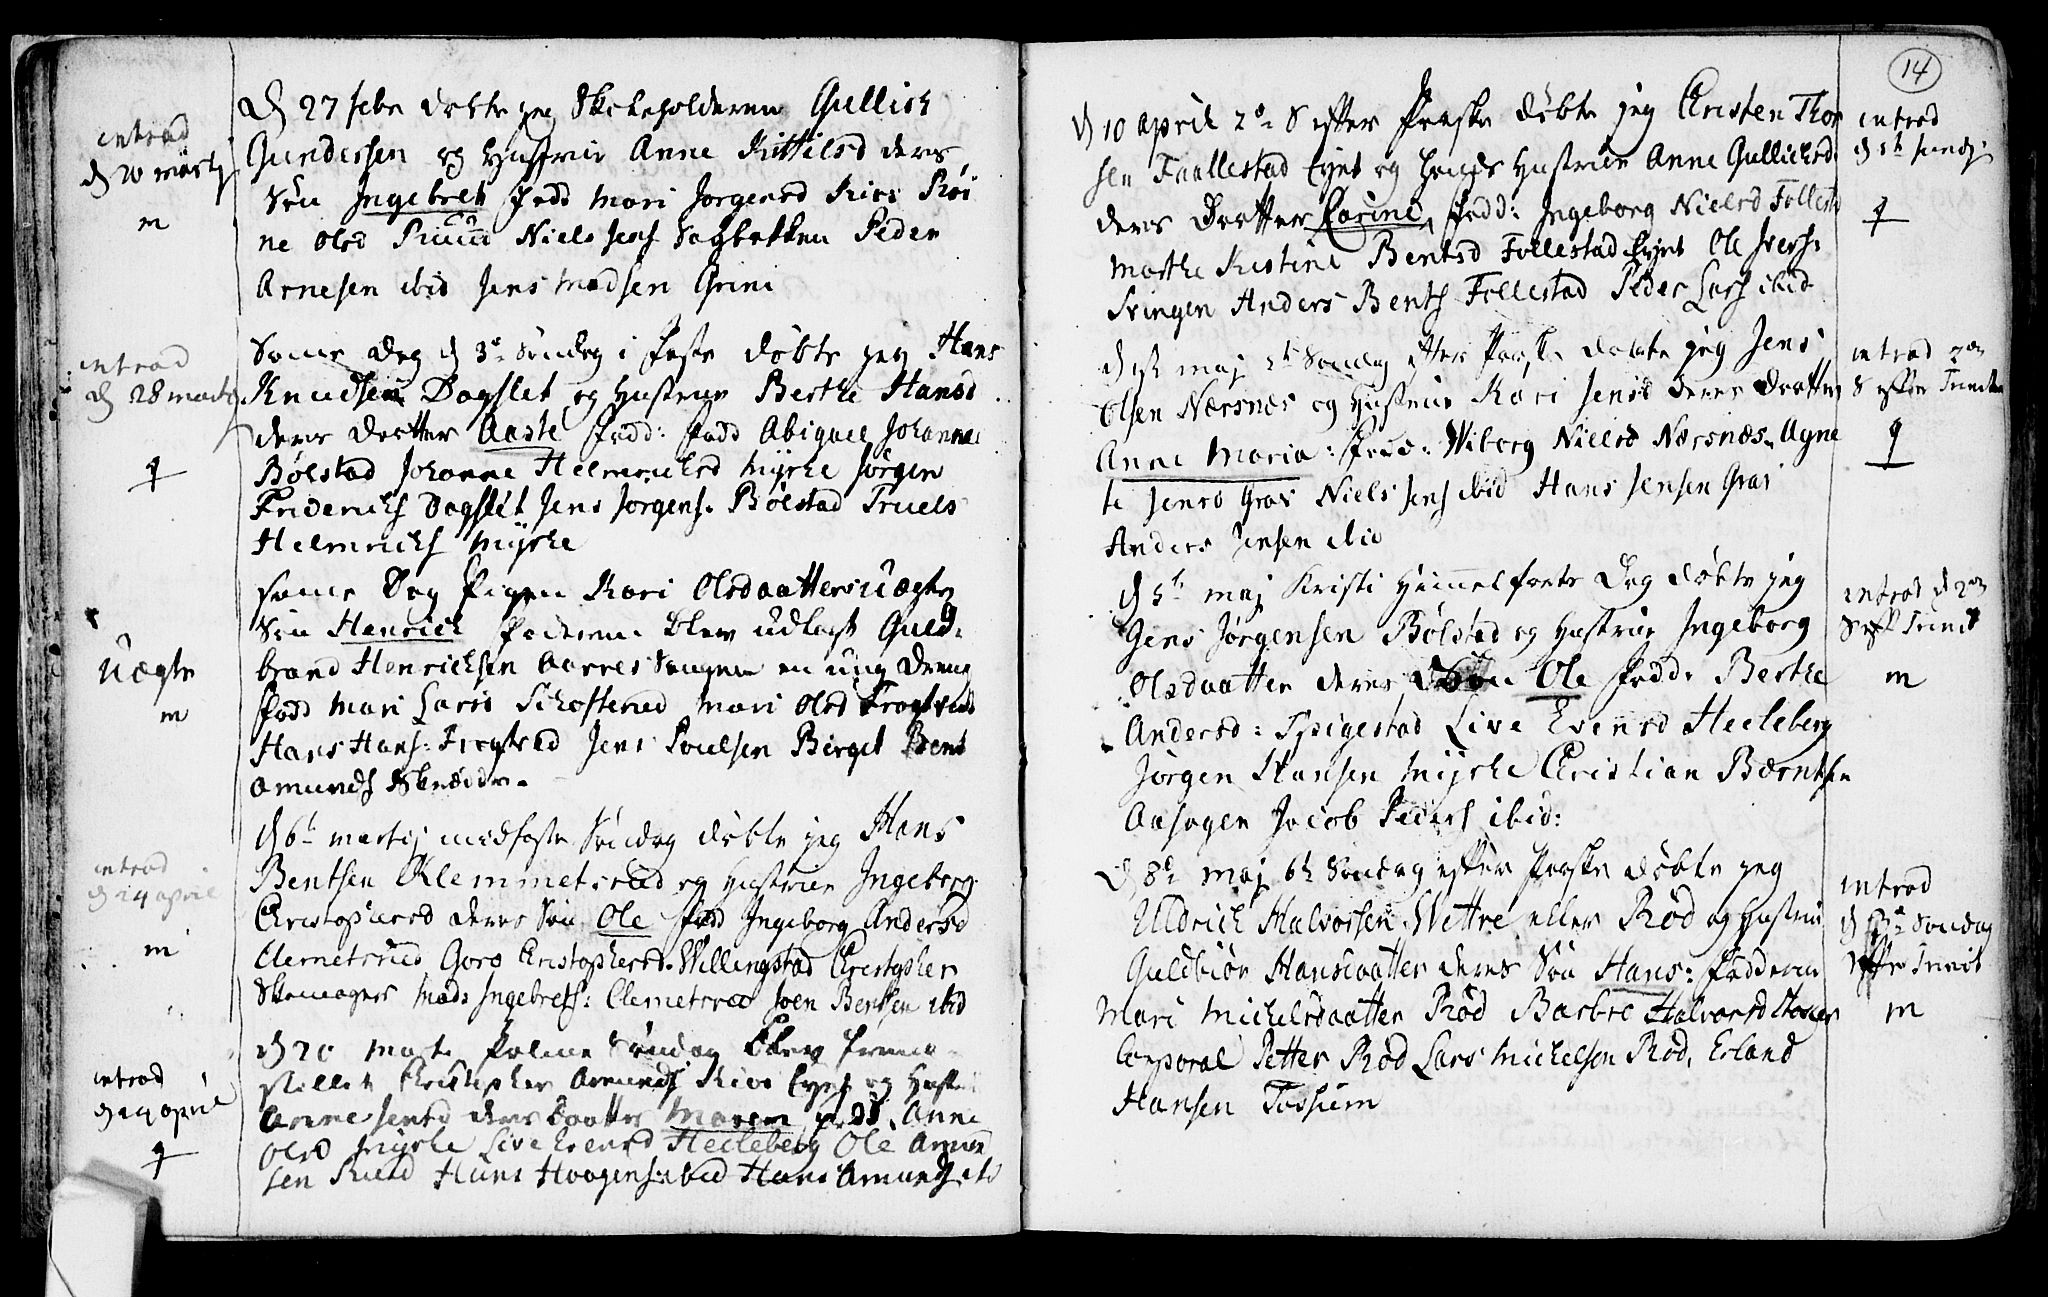 introd
d 20 martj
m
d 27 febr døbte jeg Skoleholderen Gullich
Gundersen og Hustrue Anne Kittilsd deres
Søn Ingebret fadd Mari Jorgensd
ne Olsd Ruud Niels Jens Sagbakken Peder
Arnesen ibid Jens Madsen Grini
introd
d 28 marti
Same Dag d 3 Søndag i Faste døbte jeg Hans
Knudsen Dagslet og Hustrue Berthe Hansd
deres Daatter Aaste fadd: Abiguel Johanne
Bølstad Johanne Helmrichsd Myrhe Jørgen
Friderichs Dagslet Jens Jorgens. Bølstad Truels
Helmrichs Myrhe
Uægte
m
same Dag Pigen Kari Olsdaatters Uægte
Søn Henrich Faderen blev udlagt Guld:
brand Henrichsen Aarres Saugen en ung Dreng
fadd Mari Larsd Schøfterud Mari Olsd Frogtvad
Hans Hans: Frogtvad Jens Poulsen Berget Bent
Amunds Skrædder.
introd
d 24 april
m
d 6 martij midfaste Søndag døbte jeg Hans
Bentsen Klemmetsrud og Hustrue Ingeborg
Christophersd deres Søn Ole fadd Ingeborg Andersd
Clemetsrud Goro Christophersd. Willingstad Christopher
Skomager Mads Ingebrets: Clemetsrud Joen Bentsen ibid
introd
d 24 april
d 20 Marti Palme Søndag blev frem
stillet Christopher Amunds Kios Eyet og Hustrue
Anne Jensd deres Daatter Maren fadd. Anne
Olsd Myrhe Live Evensd Heeleberg Ole Amund
sen Ruud Hans Haagens: ibid Hans Amunds ibd
14
d 10 april 2 S efter Paaske døbte jeg Christen Thor
sen Faallestad Eyet og Hands Hustrue Anne Gullichsd
deres Daatter Karine, fadd: Ingeborg Nielsd Follestd
Marthe Kistine Bentsd Follestad Eyet Ole Ivers:
Svingen Anders Bents Follestad Peder Lars ibid
introd
d 5te Sundj:
d 1te maj 5te Søndag efter Paaske døbte jeg Jens
Olsen Nærsnæs og Hustrue Kari Jensd deres Daatter
Anne Maria: fadd: Wiborg Nielsd Nærsnæs. Agne
te Jensd Grav Niels Jens ibid Hans Jensen Grav
Anders Jensen ibid
introd 2den
S efter Trinitat
d 5te maj Kristi Himmelfarts Dag døbte jeg
Jens Jørgensen Bølstad og Hustrue Ingeborg
Olsdaatter deres Søn Ole fadd: Berthe
Andersd: Spigestad Live Evensd Heeleberg
Jørgen Hansen Myrhe Christian Bærntsen
Aasagen Jacob Peders ibid:
introd d 2den
S eft Trinit
m
d 8de maj 6te Søndag efter Paaske døbte jeg
Uldrich Halvorsen Wettre eller Rød og Hustrue
Guldbiør Hansdaatter deres Søn Hans: Fadderne
Mari Michelsdaatter Rød Barbro Halvorsd
Corporal Petter Rød Lars Michelsen Rød, Erland
Hansen Tossum
introd
d 3de Søndag
efter Trinit
m